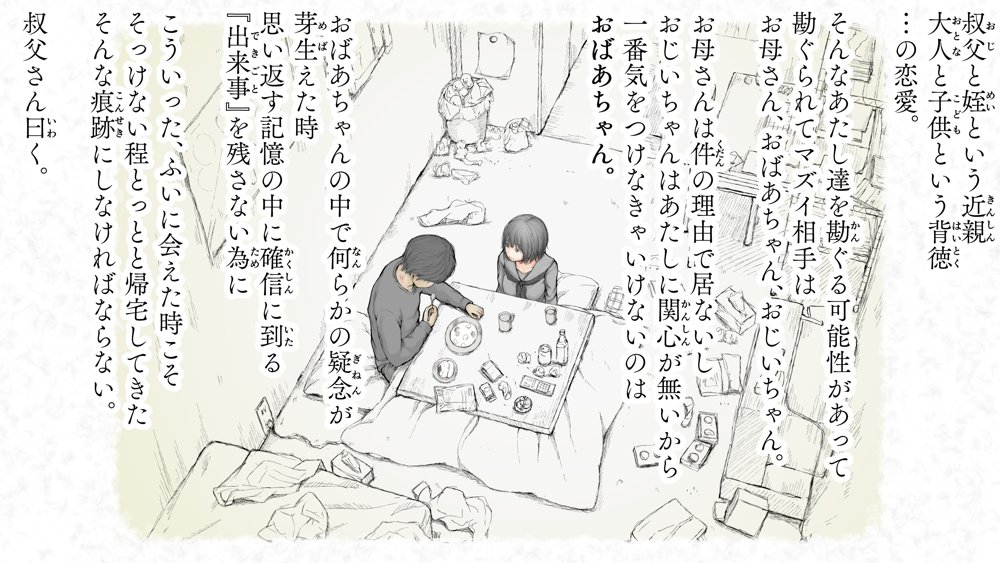 叔父と姪という近親
大人と子供という背徳
…の恋愛。
そんなあたし達を勘ぐる可能性があって
勘ぐられてマズイ相手は
お母さん、おばあちゃん、おじいちゃん。
お母さんは件の理由で居ないし
おじいちゃんはあたしに関心が無いから
一番気をつけなきゃいけないのは
おばあちゃん。
おばあちゃんの中で何らかの疑念が
芽生えた時
思い返す記憶の中に確信に到る
『出来事』を残さない為に
こういった、ふいに会えた時こそ
そっけない程とっとと帰宅してきた
そんな痕跡にしなければならない。
叔父さん曰く。